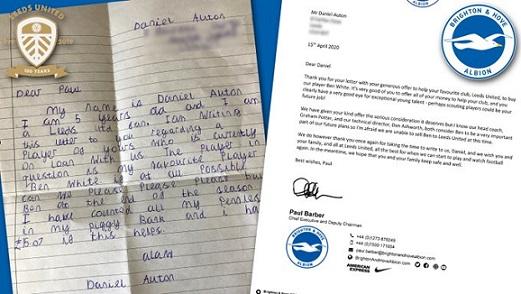 LEEDS UNITED
100 YEARS
Daniel Auton
Dear Paul
My name is Daniel Auton
I am 5 years old and I am
a Leeds utd fan. I am writing
this letter to you regarding a
Player of yours who is currently
on Loan with us the Player in
question is my favourite Player
Ben White is at all Possible
can we Please Please Please buy
Ben at the end of the season
I have counted all my Pennies
in my Piggy Bank and i have
£15.07 is this helps.
Daniel Auton
BRIGHTON & HOVE
ALBION
Mr Daniel Auton
15th April 2020
Dear Daniel
Thank you for your letter with your generous offer to help your favourite club, Leeds United, to buy
our player Ben White. It's very good of you to offer all of your money to help your club, and you
clearly have a very good eye for exceptional young talent - perhaps scouting players could be your
future job!
We have given your kind offer the serious consideration it deserves but I know our head coach,
Graham Potter, and our technical director Dan Ashworth, both consider Ben to be a very important
part of our future plans so I'm afraid we are unable to sell Ben to Leeds United at this time.
We do however thank you once again for taking the time to write to us, Daniel, and we wish you and
your family, and all at Leeds United, all the best for when we can start to play and watch football
again. In the meantime, we hope that you and your family keep safe and well.
Best wishes, Paul
Paul Barber
Chief Executive and Deputy Chairman
BRIGHTON & HOVE
ALBION
AMERICAN EXPRESS